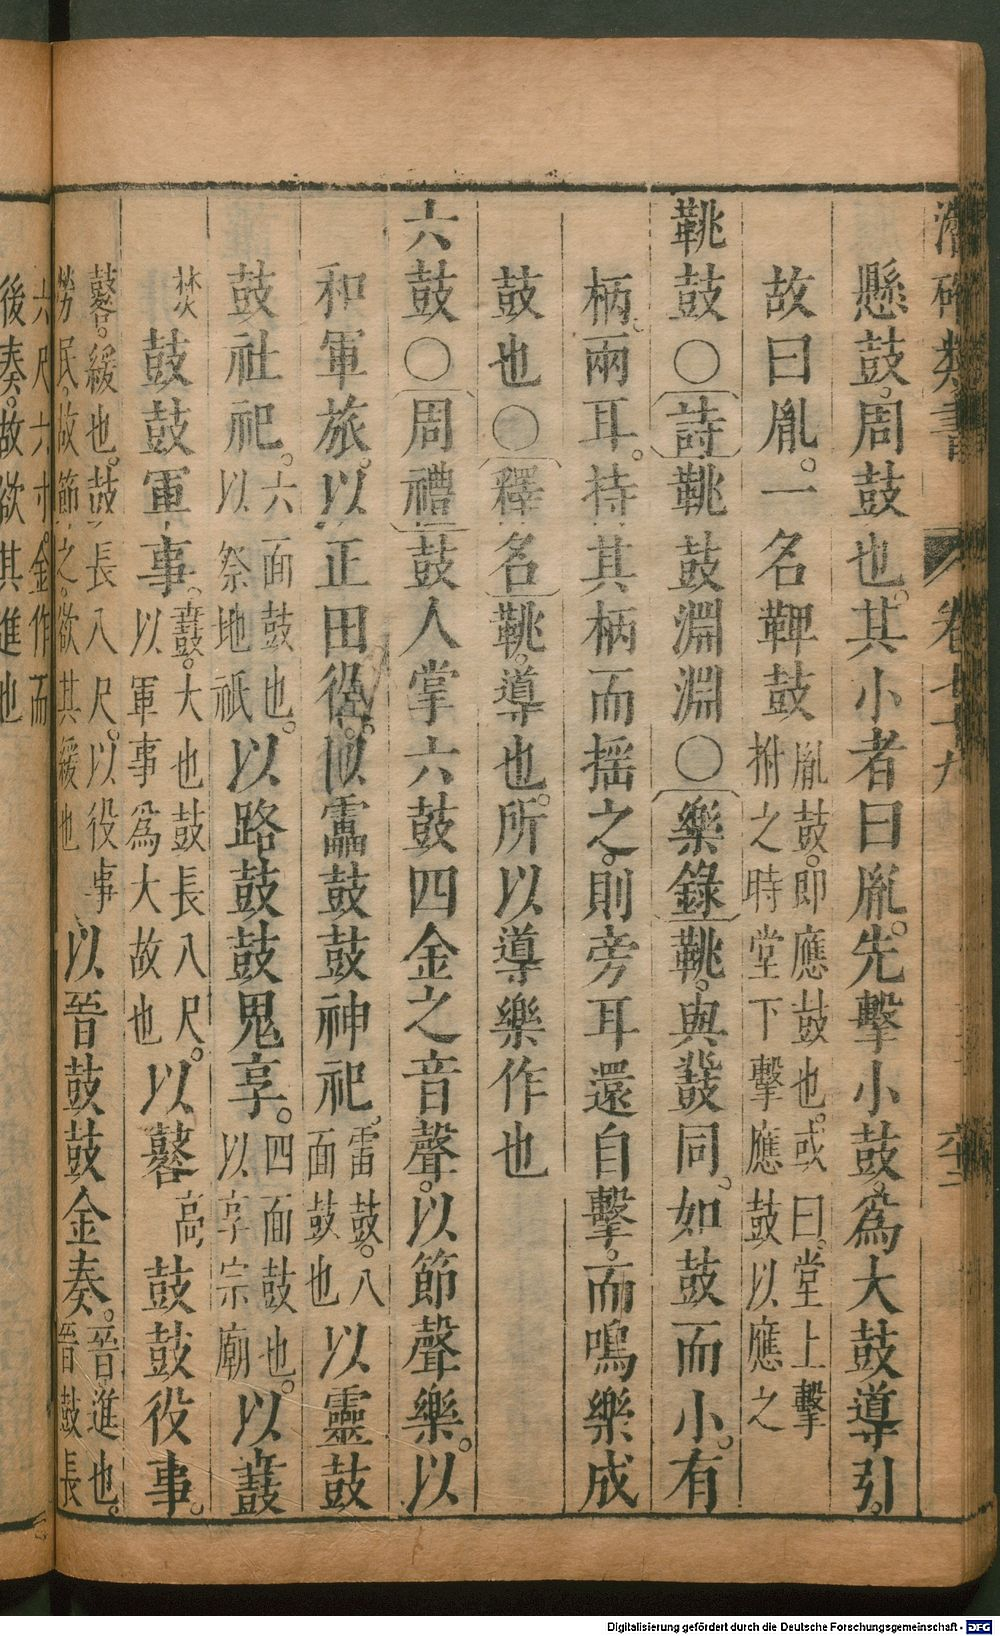 潛確類書 卷七十九
懸鼓。周鼓也。其小者曰胤。先擊小鼓。爲大鼓導引。
故曰胤。一名鞞鼓胤鼓。即應鼓也。或曰。堂上擊
拊之時堂下擊應鼓以應之
鞉鼓〇詩鞉鼓淵淵〇樂錄鞉。與鼗同。如鼓而小。有
柄。兩耳。持其柄而揺之。則旁耳還自擊。而鳴樂成
鼓也〇釋名鞉。導也。所以導樂作也
六鼓〇周禮鼓人掌六鼓四金之音聲。以節聲樂。以
和軍旅。以正田役。以靁鼓鼓神祀。雷鼓。八
面鼓也以靈鼓
鼓社祀。六面鼓也。
以祭地祇以路鼓鼓鬼享。四面鼓也。
以享宗廟以鼖
焚鼓鼓軍事。鼖鼓。大也鼓長八尺。
以軍事爲大故也以鼛高鼓鼓役事。
鼛。緩也。鼓長八尺。以役事
勞民。故節之。欲其緩也以晉鼓鼓金奏。晉進也。
晉鼓長
六尺六寸。金作而
後奏。故欲其進也
Digitalisierung gefördert durch die Deutsche Forschungsgemeinschaft - DFG